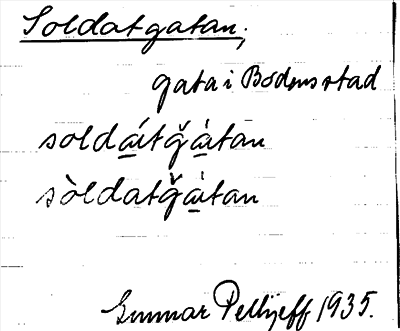 Soldatgatan;
gata i Bodens stad
solda̲ítğà̲tan
sòldatğà̲tan
Gunnar Pellijeff 1935.